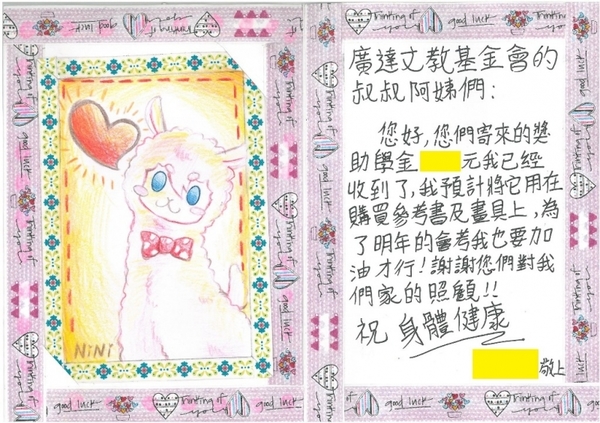 NiNi
廣達文教基金會的
叔叔阿姨們:
您好,您們寄來的獎
助學金 元我已經
收到了,我預計將它用在
購買參考書及畫具上,為
了明年的會考我也要加
油才行!謝謝您們對我
們家的照顧!!
祝 身體健康
敬上
Thinking of you
good luck